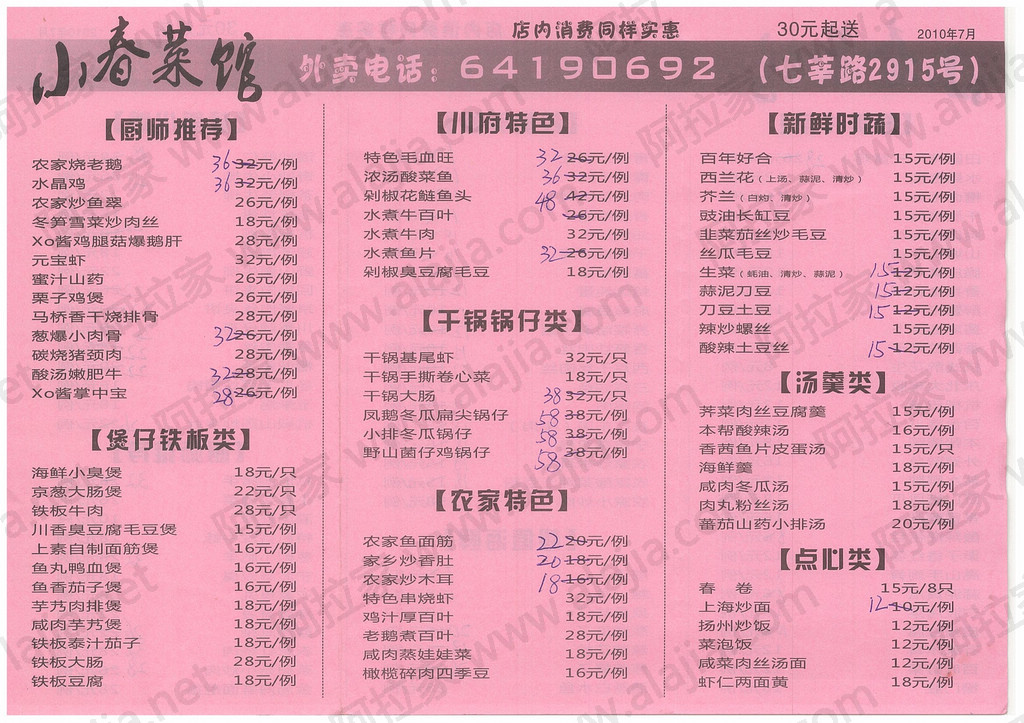 小春菜馆
店内消费同样实惠
30元起送
2010年7月
外卖电话：64190692 （七莘路2915号）
【厨师推荐】
农家烧老鹅 36 32元/例
水晶鸡 36 32元/例
农家炒鱼翠 26元/例
冬笋雪菜炒肉丝 18元/例
Xo酱鸡腿菇爆鹅肝 28元/例
元宝虾 32元/例
蜜汁山药 26元/例
栗子鸡煲 26元/例
马桥香干烧排骨 28元/例
葱爆小肉骨 32 26元/例
碳烧猪颈肉 28元/例
酸汤嫩肥牛 32 28元/例
Xo酱掌中宝 28 26元/例
【煲仔铁板类】
海鲜小臭煲 18元/只
京葱大肠煲 22元/只
铁板牛肉 28元/只
川香臭豆腐毛豆煲 15元/例
上素自制面筋煲 16元/例
鱼丸鸭血煲 16元/例
鱼香茄子煲 16元/例
芋艿肉排煲 18元/例
咸肉芋艿煲 18元/例
铁板泰汁茄子 18元/例
铁板大肠 28元/例
铁板豆腐 18元/例
【川府特色】
特色毛血旺 32 26元/例
浓汤酸菜鱼 36 32元/例
剁椒花鲢鱼头 48 42元/例
水煮牛百叶 26元/例
水煮牛肉 32元/例
水煮鱼片 32 26元/例
剁椒臭豆腐毛豆 18元/例
【干锅锅仔类】
干锅基尾虾 32元/只
干锅手撕卷心菜 18元/只
干锅大肠 38 32元/只
凤鹅冬瓜扁尖锅仔 58 38元/例
小排冬瓜锅仔 58 38元/例
野山菌仔鸡锅仔 58 38元/例
【农家特色】
农家鱼面筋 22 20元/例
家乡炒香肚 20 18元/例
农家炒木耳 18 16元/例
特色串烧虾 32元/例
鸡汁厚百叶 18元/例
老鹅煮百叶 28元/例
咸肉蒸娃娃菜 18元/例
橄榄碎肉四季豆 16元/例
【新鲜时蔬】
百年好合 15元/例
西兰花（上汤、蒜泥、清炒） 15元/例
芥兰（白灼、清炒） 15元/例
豉油长缸豆 15元/例
韭菜茄丝炒毛豆 15元/例
丝瓜毛豆 15元/例
生菜（蚝油、清炒、蒜泥） 15 12元/例
蒜泥刀豆 15 12元/例
刀豆土豆 15 12元/例
辣炒螺丝 15元/例
酸辣土豆丝 15 12元/例
【汤羹类】
荠菜肉丝豆腐羹 15元/例
本帮酸辣汤 16元/例
香茜鱼片皮蛋汤 15元/只
海鲜羹 18元/例
咸肉冬瓜汤 15元/例
肉丸粉丝汤 18元/例
蕃茄山药小排汤 20元/例
【点心类】
春 卷 15元/8只
上海炒面 12 10元/例
扬州炒饭 12元/例
菜泡饭 12元/例
咸菜肉丝汤面 12元/例
虾仁两面黄 18元/例
阿拉家 www.alajia.com
www.alajia.net